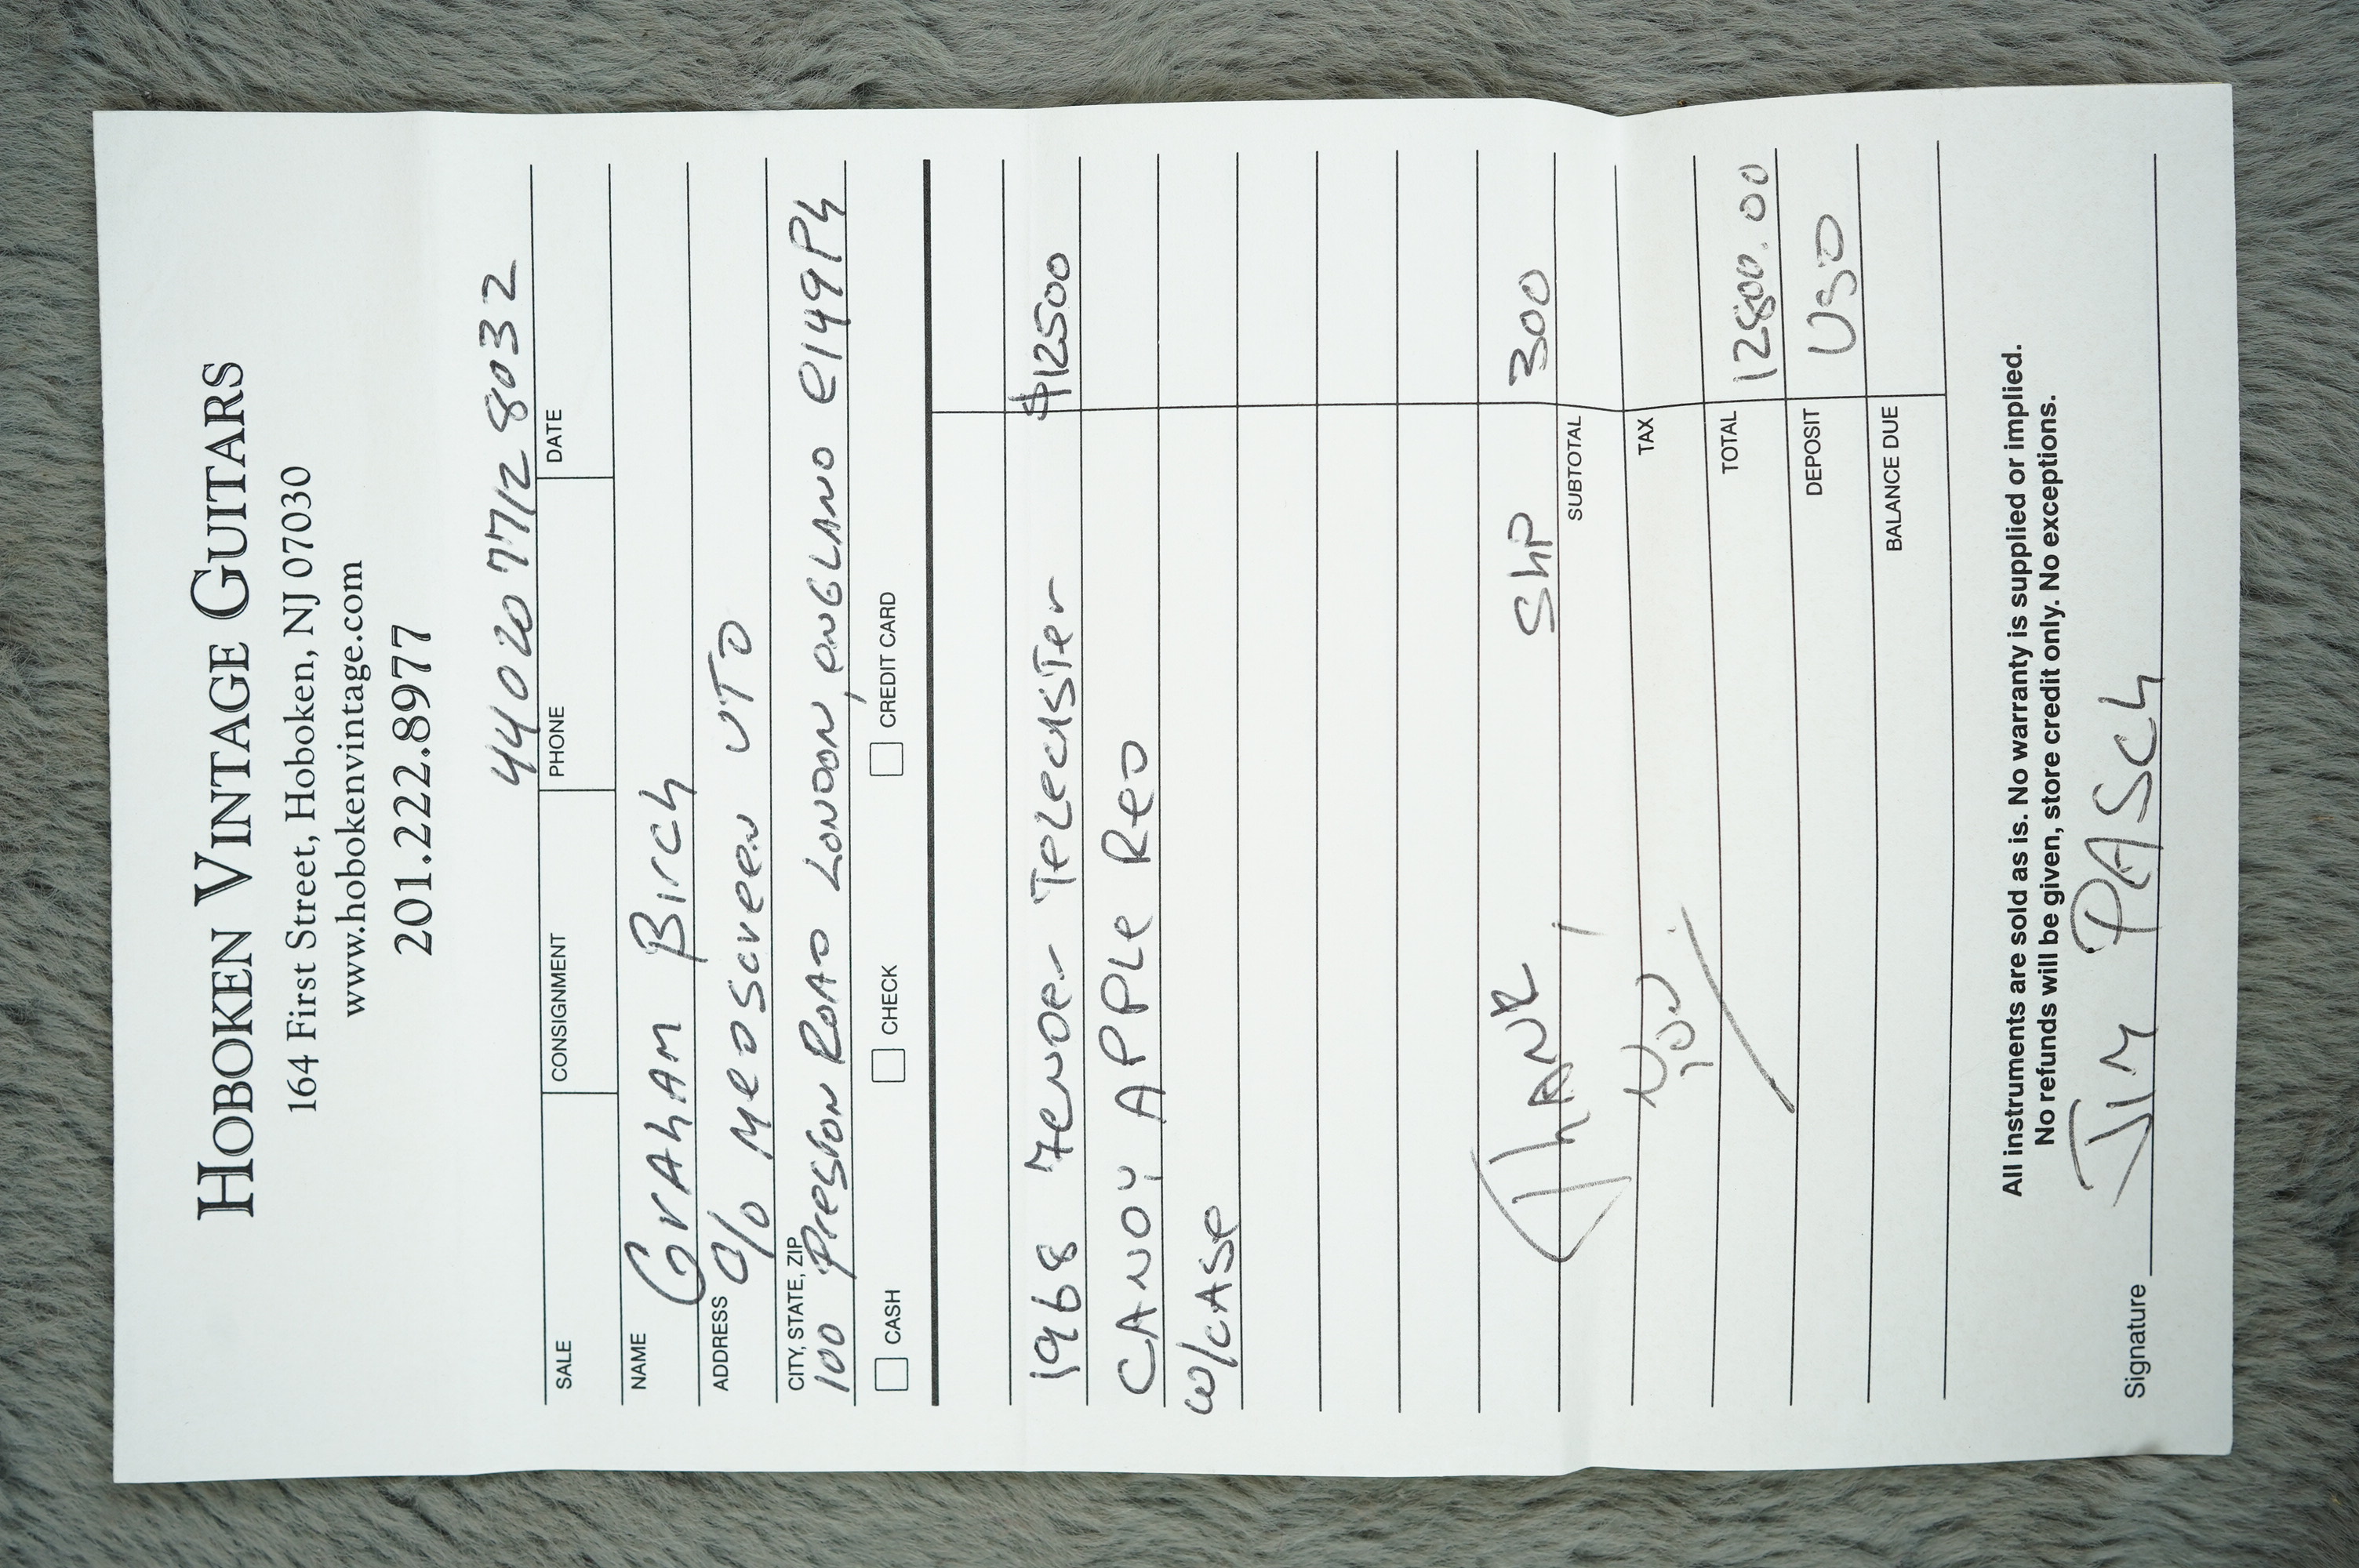 HOBOKEN VINTAGE GUITARS
164 First Street, Hoboken, NJ 07030
www.hobokenvintage.com
201.222.8977
44 020 7712 8032
SALE CONSIGNMENT PHONE DATE
NAME Graham Birch
ADDRESS c/o Medscreen LTD
CITY, STATE, ZIP
100 Preston Road London, England E149Ph
CASH CHECK CREDIT CARD
1968 Fender Telecaster $12500
CANDY APPLE Red
w/case
Thank Ship 300
SUBTOTAL
You TAX
TOTAL 12800.00
DEPOSIT USD
BALANCE DUE
All instruments are sold as is. No warranty is supplied or implied.
No refunds will be given, store credit only. No exceptions.
Signature Jim PASch